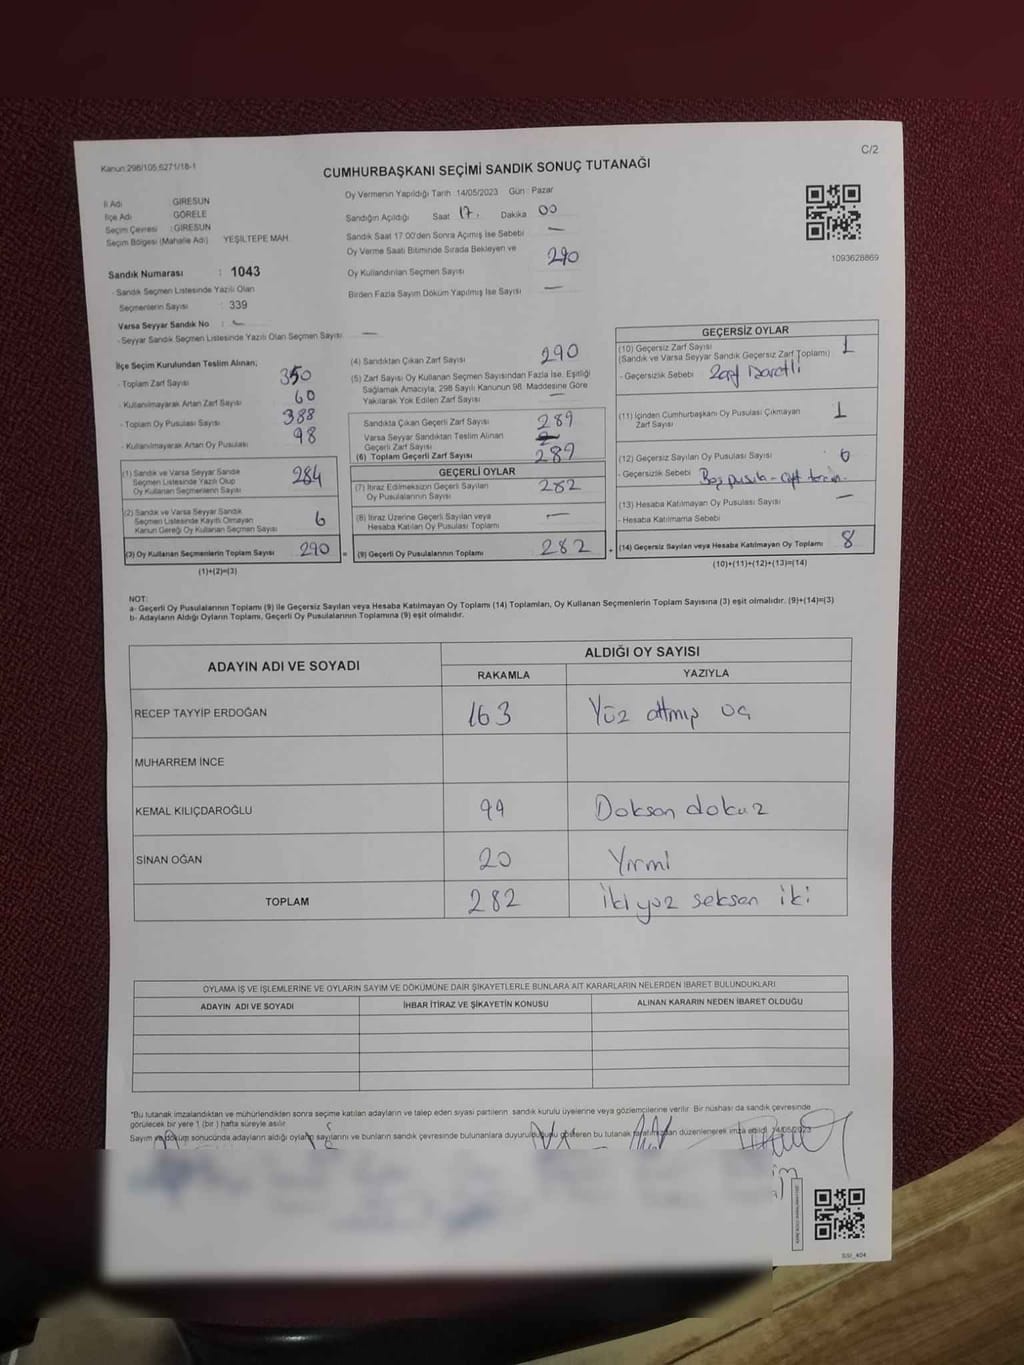 Kanun:298/105,6271/18-1
C/2
CUMHURBAŞKANI SEÇİMİ SANDIK SONUÇ TUTANAĞI
İl Adı : GİRESUN
İlçe Adı : GÖRELE
Seçim Çevresi : GİRESUN
Seçim Bölgesi (Mahalle Adı) YEŞİLTEPE MAH.
Sandık Numarası : 1043
- Sandık Seçmen Listesinde Yazılı Olan
Seçmenlerin Sayısı : 339
Varsa Seyyar Sandık No :
- Seyyar Sandık Seçmen Listesinde Yazılı Olan Seçmen Sayısı : —
Oy Vermenin Yapıldığı Tarih 14/05/2023 Gün : Pazar
Sandığın Açıldığı Saat 17. Dakika 00
Sandık Saat 17.00'den Sonra Açılmış İse Sebebi —
Oy Verme Saati Bitiminde Sırada Bekleyen ve
Oy Kullandırılan Seçmen Sayısı 290
Birden Fazla Sayım Döküm Yapılmış İse Sayısı —
1093628869
İlçe Seçim Kurulundan Teslim Alınan;
- Toplam Zarf Sayısı 350
- Kullanılmayarak Artan Zarf Sayısı 60
- Toplam Oy Pusulası Sayısı 388
- Kullanılmayarak Artan Oy Pusulası 98
(1) Sandık ve Varsa Seyyar Sandık
Seçmen Listesinde Yazılı Olup
Oy Kullanan Seçmenlerin Sayısı 284
(2) Sandık ve Varsa Seyyar Sandık
Seçmen Listesinde Kayıtlı Olmayan
Kanun Gereği Oy Kullanan Seçmen Sayısı 6
(3) Oy Kullanan Seçmenlerin Toplam Sayısı 290 =
(1)+(2)=(3)
(4) Sandıktan Çıkan Zarf Sayısı 290
(5) Zarf Sayısı Oy Kullanan Seçmen Sayısından Fazla İse, Eşitliği
Sağlamak Amacıyla, 298 Sayılı Kanunun 98. Maddesine Göre
Yakılarak Yok Edilen Zarf Sayısı —
Sandıkta Çıkan Geçerli Zarf Sayısı 289
Varsa Seyyar Sandıktan Teslim Alınan
Geçerli Zarf Sayısı
(6) Toplam Geçerli Zarf Sayısı 289
GEÇERLİ OYLAR
(7) İtiraz Edilmeksizin Geçerli Sayılan
Oy Pusulalarının Sayısı 282
(8) İtiraz Üzerine Geçerli Sayılan veya
Hesaba Katılan Oy Pusulası Toplamı —
(9) Geçerli Oy Pusulalarının Toplamı 282 +
GEÇERSİZ OYLAR
(10) Geçersiz Zarf Sayısı
(Sandık ve Varsa Seyyar Sandık Geçersiz Zarf Toplamı) 1
- Geçersizlik Sebebi Zarf
(11) İçinden Cumhurbaşkanı Oy Pusulası Çıkmayan
Zarf Sayısı 1
(12) Geçersiz Sayılan Oy Pusulası Sayısı 6
- Geçersizlik Sebebi Boş pusula - çift
(13) Hesaba Katılmayan Oy Pusulası Sayısı —
- Hesaba Katılmama Sebebi
(14) Geçersiz Sayılan veya Hesaba Katılmayan Oy Toplamı 8
(10)+(11)+(12)+(13)=(14)
NOT:
a- Geçerli Oy Pusulalarının Toplamı (9) ile Geçersiz Sayılan veya Hesaba Katılmayan Oy Toplamı (14) Toplamları, Oy Kullanan Seçmenlerin Toplam Sayısına (3) eşit olmalıdır. (9)+(14)=(3)
b- Adayların Aldığı Oyların Toplamı, Geçerli Oy Pusulalarının Toplamına (9) eşit olmalıdır.
ADAYIN ADI VE SOYADI
ALDIĞI OY SAYISI
RAKAMLA YAZIYLA
RECEP TAYYİP ERDOĞAN 163 Yüz altmış üç
MUHARREM İNCE
KEMAL KILIÇDAROĞLU 99 Doksan dokuz
SİNAN OĞAN 20 Yirmi
TOPLAM 282 İki yüz seksen iki
OYLAMA İŞ VE İŞLEMLERİNE VE OYLARIN SAYIM VE DÖKÜMÜNE DAİR ŞİKAYETLERLE BUNLARA AİT KARARLARIN NELERDEN İBARET BULUNDUKLARI
ADAYIN ADI VE SOYADI İHBAR İTİRAZ VE ŞİKAYETİN KONUSU ALINAN KARARIN NEDEN İBARET OLDUĞU
*Bu tutanak imzalandıktan ve mühürlendikten sonra seçime katılan adayların ve talep eden siyasi partilerin sandık kurulu üyelerine veya gözlemcilerine verilir. Bir nüshası da sandık çevresinde
görülecek bir yere 1 (bir) hafta süreyle asılır.
Sayım ve döküm sonucunda adayların aldığı oyların sayılarını ve bunların sandık çevresinde bulunanlara duyurulduğunu gösteren bu tutanak tarafımızdan düzenlenerek imza edildi. 14/05/2023
SSI_404